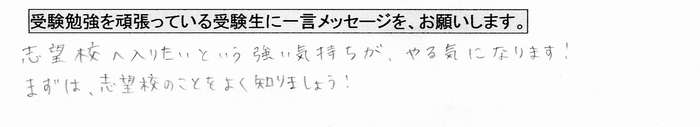 受験勉強を頑張っている受験生に一言メッセージを、お願いします。
志望校へ入りたいという強い気持ちが、やる気になります！
まずは、志望校のことをよく知りましょう！